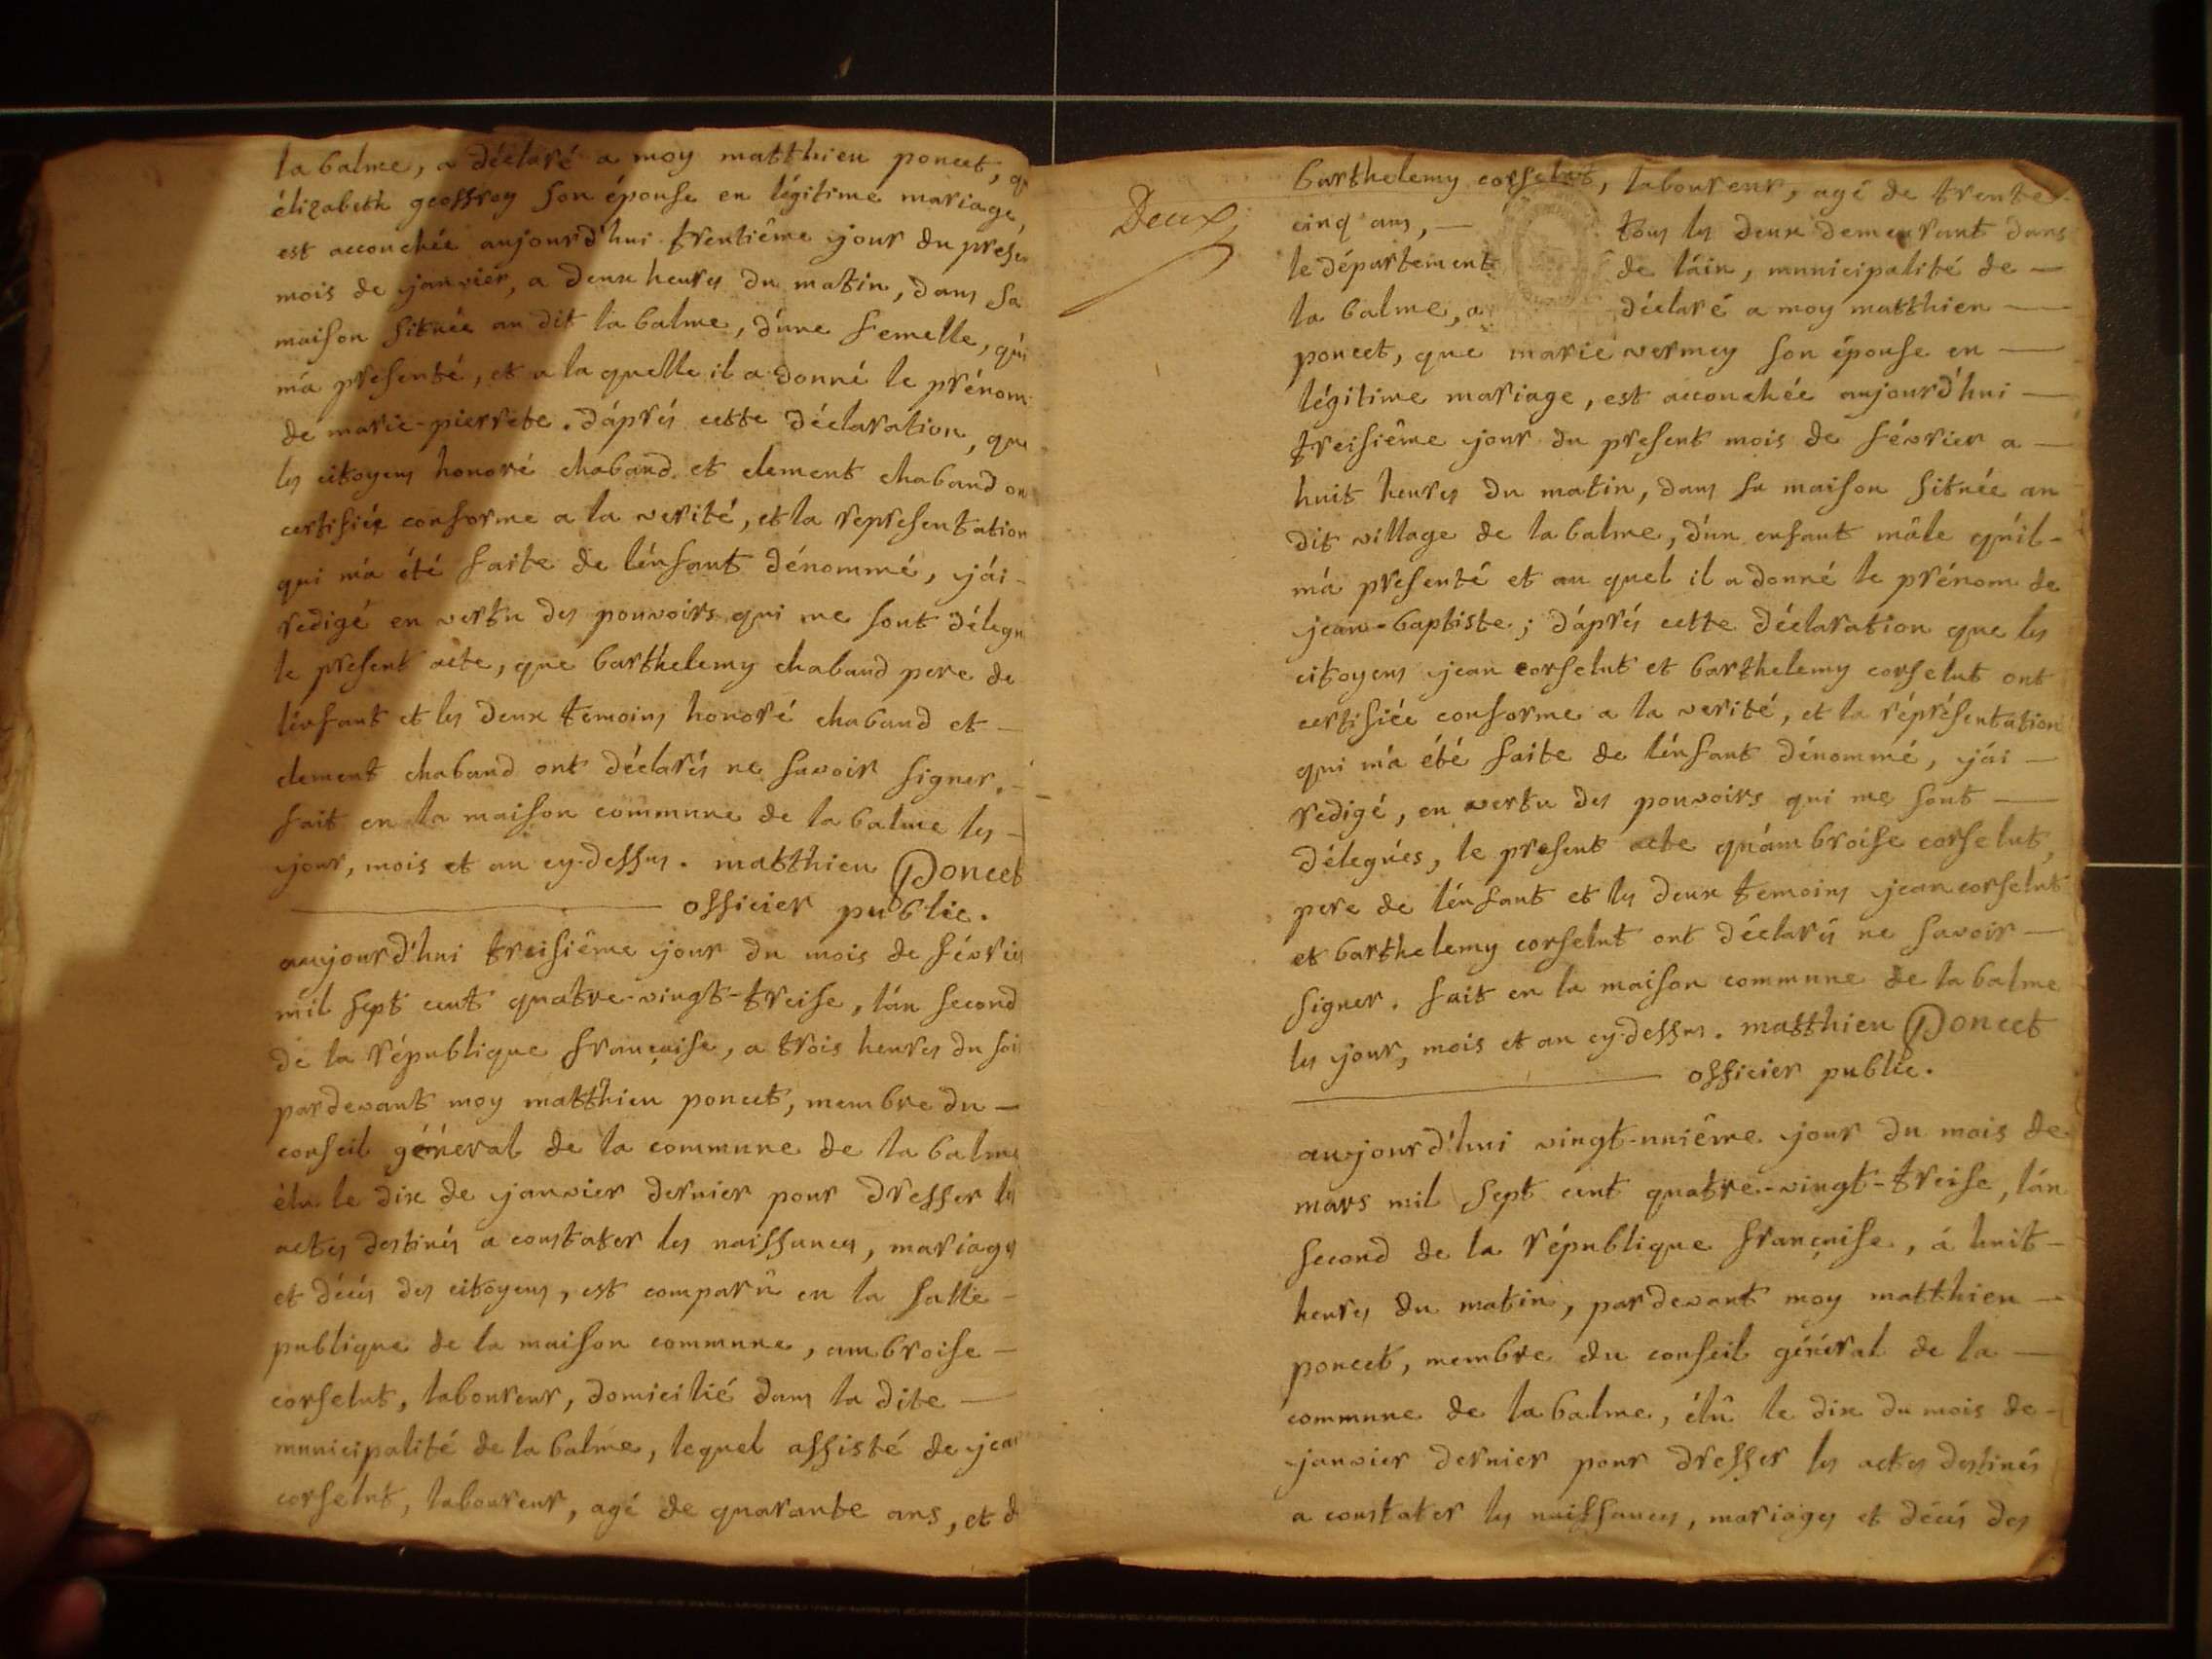 la balme, a déclaré a moy matthieu poncet, qu
élizabeth geoffroy son épouse en légitime mariage,
est accouchée aujourd'hui trentiême jour du prese
mois de janvier, a deux heures du matin, dans sa
maison située au dit la balme, d'une femelle, qu'il
m'a presenté, et a la quelle il a donné le prénom
de marie-pierrete. d'áprés cette déclaration, que
les citoyens honoré chaband et clement chaband on
certifiée conforme a la verité, et la representation
qui m'a été faite de l'énfant dénommé, j'ái -
redigé en vertu des pouvoirs qui me sont délegu
le present acte, que barthelemy chaband pere de
l'énfant et les deux temoins honoré chaband et -
clement chaband ont déclarés ne savoir signer. -
fait en la maison commune de la balme les -
jour, mois et an cy-dessus. matthieu Poncet
officier public.
aujourd'hui treisiême jour du mois de févrie
mil sept cent quatre-vingt-treise, l'án second
de la république française, a trois heures du soi
pardevant moy matthieu poncet, membre du -
conseil géneral de la commune de la balme
élu le dix de janvier dernier pour dresser les
actes destinés a constater les naissances, mariages
et décés des citoyens, est comparû en la salle -
publique de la maison commune, ambroise -
corselut, laboureur, domicilié dans la dite -
municipalité de la balme, lequel assisté de jean
corselut, laboureur, agé de quarante ans, et d
Deux
barthelemy corselut, laboureur, agé de trente
cinq ans, - tous les deux demeurant dans
le département de l'áin, municipalité de -
la balme, a déclaré a moy matthieu -
poncet, que marie vermey son épouse en -
légitime mariage, est accouchée aujourd'hui -
treisiême jour du present mois de février a -
huit heures du matin, dans sa maison située au
dit village de la balme, d'ún enfant mâle qu'il -
m'á presenté et au quel il a donné le prénom de
jean-baptiste; d'áprés cette déclaration que les
citoyens jean corselut et barthelemy corselut ont
certifiée conforme a la verité, et la réprésentation
qui m'á été faite de l'énfant dénommé, j'ái -
redigé, en vertu des pouvoirs qui me sont -
délegués, le present acte qu'ámbroise corselut,
pere de l'énfant et les deux temoins jean corselut
et barthelemy corselut ont déclarés ne savoir -
signer. fait en la maison commune de la balme
les jour, mois et an cy-dessus. matthieu Poncet
officier public.
aujourd'hui vingt-uniême jour du mois de
mars mil sept cent quatre-vingt-treise, l'án
second de la république française, á huit -
heures du matin, pardevant moy matthieu -
poncet, membre du conseil général de la -
commune de la balme, élû le dix du mois de -
janvier dernier pour dresser les actes destinés
a constater les naissances, mariages et décés des